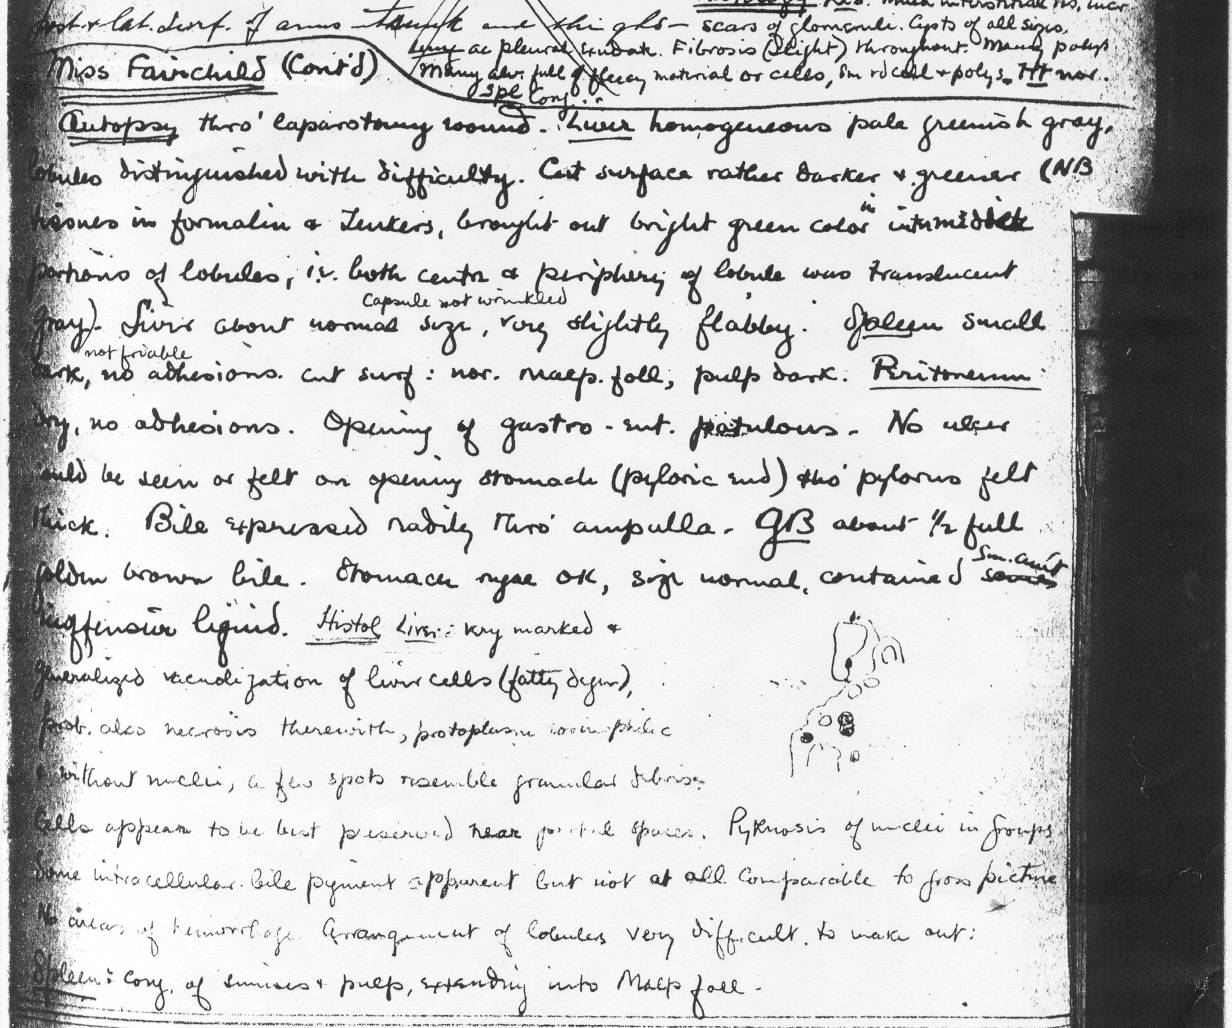 post. & lat. surf. of arms trunk and thighs — scars of glomeruli. Cysts of all sizes,
ac pleural exudate. Fibrosis (slight) throughout. Many polys
Miss Fairchild (Cont'd) Many alv. full of fleecy material or cells, sm rd cell & polys. Ht nor.
Spl Cong.
Autopsy thro' laparotomy wound. Liver homogeneous pale greenish gray,
lobules distinguished with difficulty. Cut surface rather darker & greener (NB
tissues in formalin & Zenkers, brought out bright green color in intermediate
portions of lobules, i.e. both center & periphery of lobule was translucent
capsule not wrinkled
gray). Liver about normal size, very slightly flabby. Spleen small
not friable
dark, no adhesions. Cut surf: nor. Malp. foll, pulp dark. Peritoneum
dry, no adhesions. Opening of gastro-ent. patulous. No ulcer
could be seen or felt on opening stomach (pyloric end) tho' pylorus felt
thick. Bile expressed readily thro' ampulla. GB about 1/2 full
golden brown bile. Stomach rugae OK, size normal, contained sm. amt
inoffensive liquid. Histol Liver: very marked &
generalized vacuolization of liver cells (fatty degen),
prob. also necrosis therewith, protoplasm
without nuclei, a few spots resemble granular debris.
Cells appear to be best preserved near portal spaces. Pyknosis of nuclei in groups
Some intracellular bile pigment apparent but not at all comparable to gross picture
No areas of hemorrhage. Arrangement of lobules very difficult to make out:
Spleen: cong. of sinuses & pulp, extending into Malp foll.